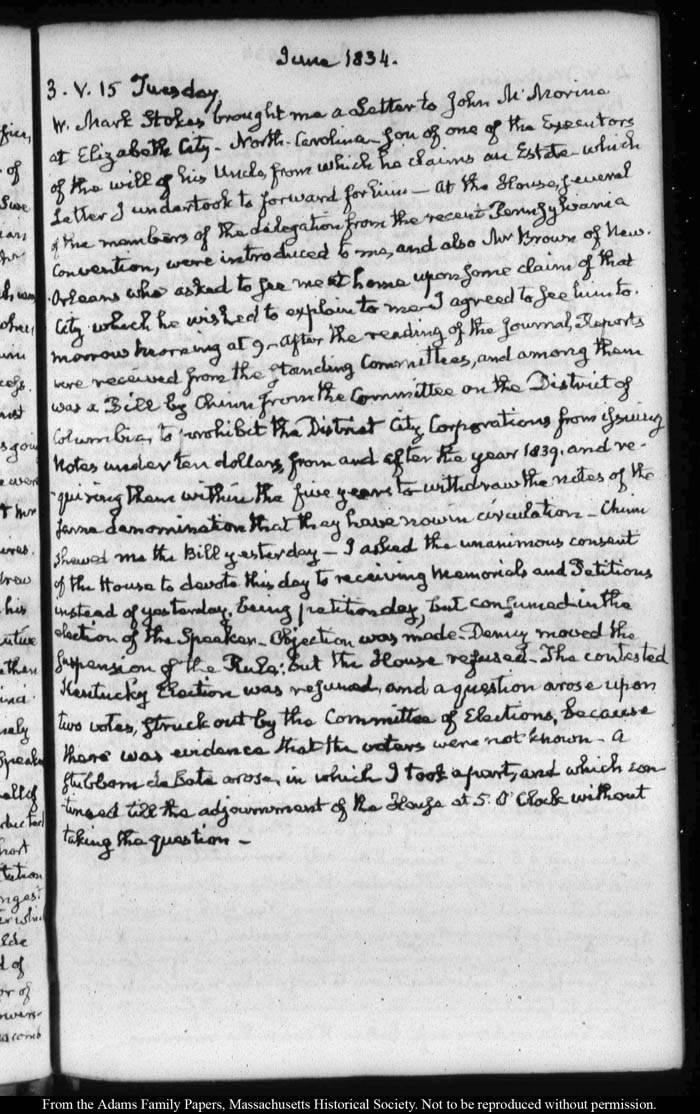 June 1834.
3. V. 15 Tuesday.
W. Mark Stokes brought me a Letter to John McMorine
at Elizabeth City - North-Carolina - son of one of the Executors
of the will of his Uncle, from which he claims an Estate - which
Letter I undertook to forward for him - At the House, several
of the members of the delegation from the recent Pennsylvania
Convention, were introduced to me, and also Mr Brown of New-
Orleans who asked to see me at home upon some claim of that
City which he wished to explain to me - I agreed to see him to-
morrow morning at 9 - After the reading of the Journal, Reports
were received from the standing Committees, and among them
was a Bill by Chinn from the Committee on the District of
Columbia, to prohibit the District City Corporations from issuing
Notes under ten dollars, from and after the year 1839. and re-
quiring them within the five years to withdraw the notes of the
same denomination that they have now in circulation - Chinn
shewed me the Bill yesterday - I asked the unanimous consent
of the House to devote this day to receiving Memorials and Petitions
instead of yesterday, being petition day, but consumed in the
election of the Speaker - Objection was made. Denny moved the
suspension of the Rule; but the House refused - The contested
Kentucky Election was resumed, and a question arose upon
two votes, struck out by the Committee of Elections, because
there was evidence that the voters were not known - A
stubborn debate arose, in which I took a part, and which con-
tinued till the adjournment of the House at 5. O'Clock without
taking the question -
From the Adams Family Papers, Massachusetts Historical Society. Not to be reproduced without permission.